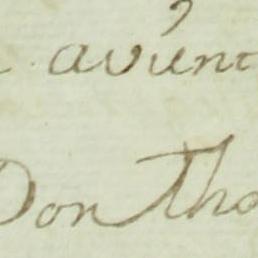 avúnt
Don Tho